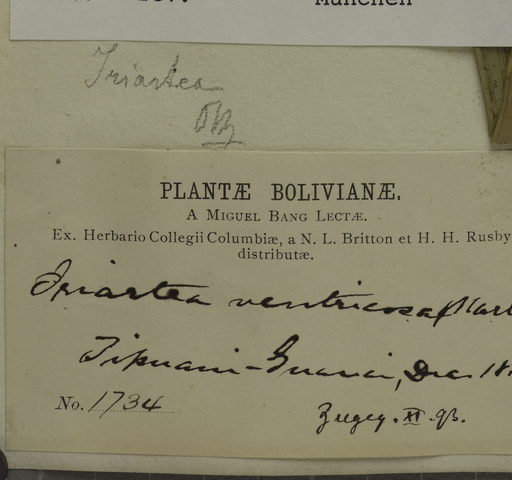 München
Iriartea
PLANTÆ BOLIVIANÆ.
A MIGUEL BANG LECTÆ.
Ex. Herbario Collegii Columbiæ, a N. L. Britton et H. H. Rusby
distributæ.
Iriartea ventricosa Mart
Tipuani-Guanai, Dec. 18
No. 1734
XII.93.